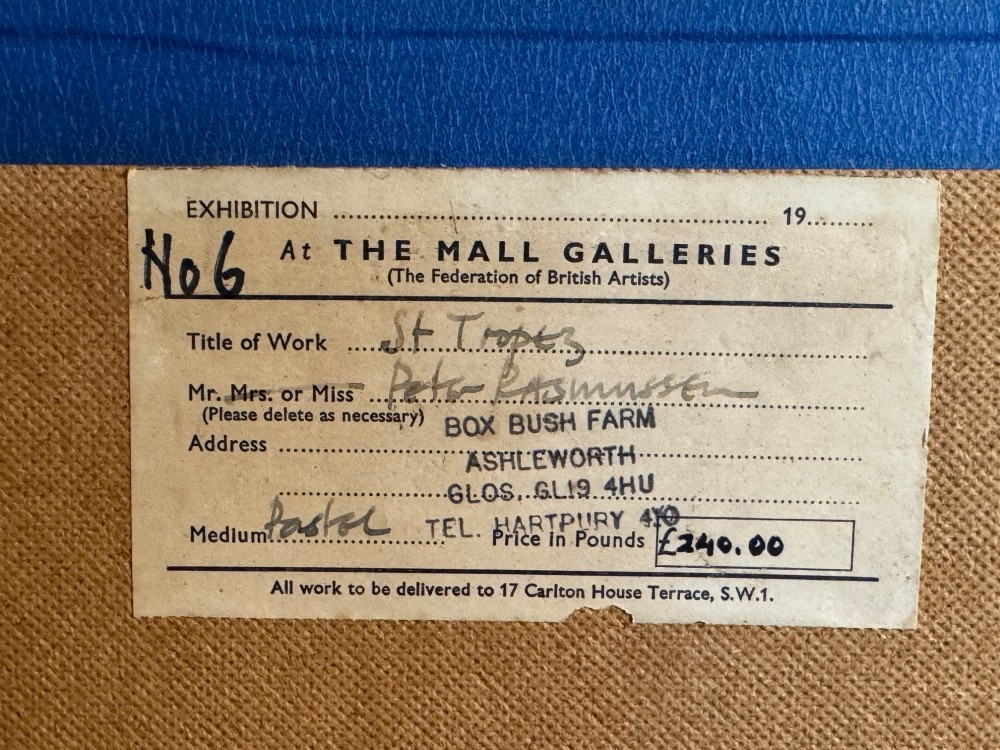 EXHIBITION ........................ 19........
No 6
At THE MALL GALLERIES
(The Federation of British Artists)
Title of Work St Tropez
Mr. Mrs. or Miss Peter Rasmussen
(Please delete as necessary)
BOX BUSH FARM
Address
ASHLEWORTH
GLOS, GL19 4HU
TEL. HARTPURY
Medium Pastel
Price in Pounds £240.00
All work to be delivered to 17 Carlton House Terrace, S.W.1.